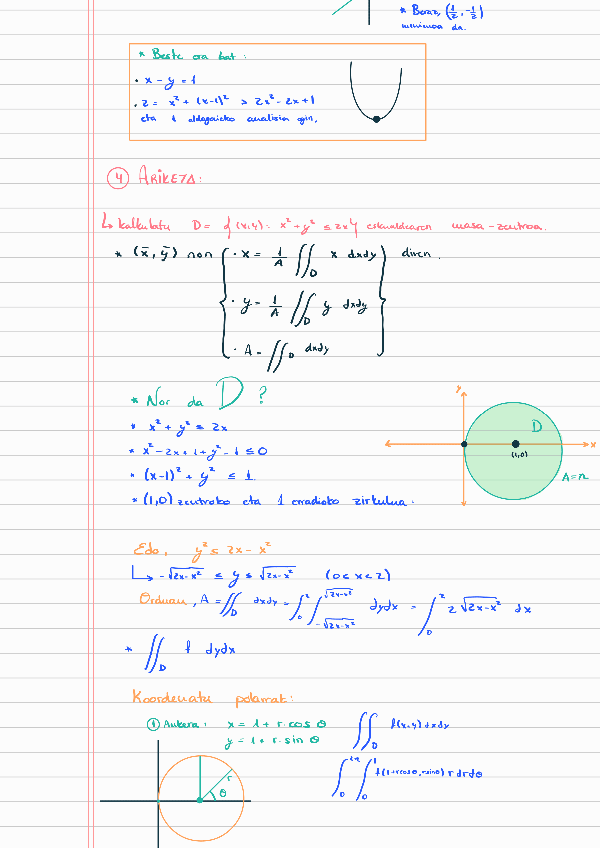 * Beraz, (1/2, -1/2)
minimoa da.
* Beste era bat:
• x - y = 1
• z = x² + (x-1)² > 2x² - 2x + 1
eta 1 aldagaieko analisia egin.
④ ARIKETA:
↳ kalkulatu D = {(x,y): x² + y² ≤ 2x} eskualdearen masa-zentroa.
* (x̄, ȳ) non { • x = 1/A ∬_D x dxdy } diren.
• y = 1/A ∬_D y dxdy
• A = ∬_D dxdy
* Nor da D ?
* x² + y² ≤ 2x
* x² - 2x + 1 + y² - 1 ≤ 0
* (x-1)² + y² ≤ 1
* (1,0) zentroko eta 1 erradioko zirkulua.
y
D
x
(1,0)
A = π
Edo, y² ≤ 2x - x²
↳ -√(2x-x²) ≤ y ≤ √(2x-x²) (0 ≤ x ≤ 2)
Orduan, A = ∬_D dxdy = ∫_0^2 ∫_{-√(2x-x²)}^{√(2x-x²)} dydx = ∫_0^2 2√(2x-x²) dx
* ∬_D f dydx
Koordenatu polarrak:
① Aukera: x = 1 + r·cos θ ∬_D f(x,y) dxdy
y = 1 + r·sin θ
∫_0^{2π} ∫_0^1 f(1+rcosθ, rsinθ) r dr dθ
r
θ